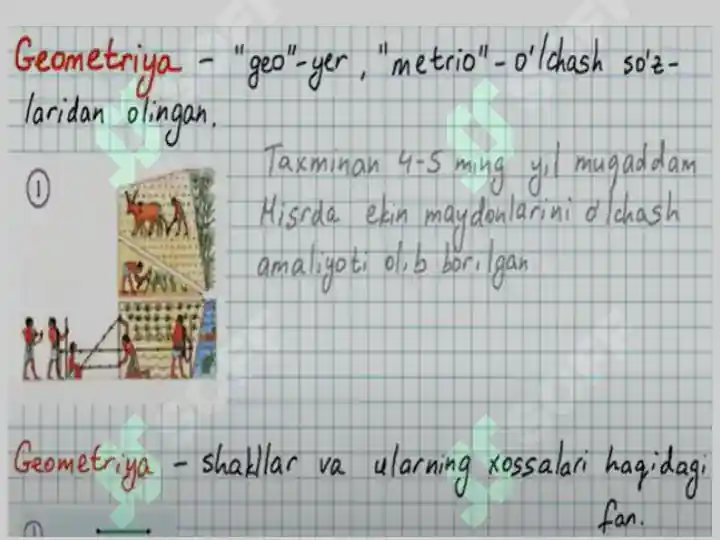 Geometriya – "geo"-yer, "metrio"-o'lchash so'z-
laridan olingan.
①
Taxminan 4-5 ming yil muqaddam
Misrda ekin maydonlarini o'lchash
amaliyoti olib borilgan
Geometriya – shakllar va ularning xossalari haqidagi
fan.
①